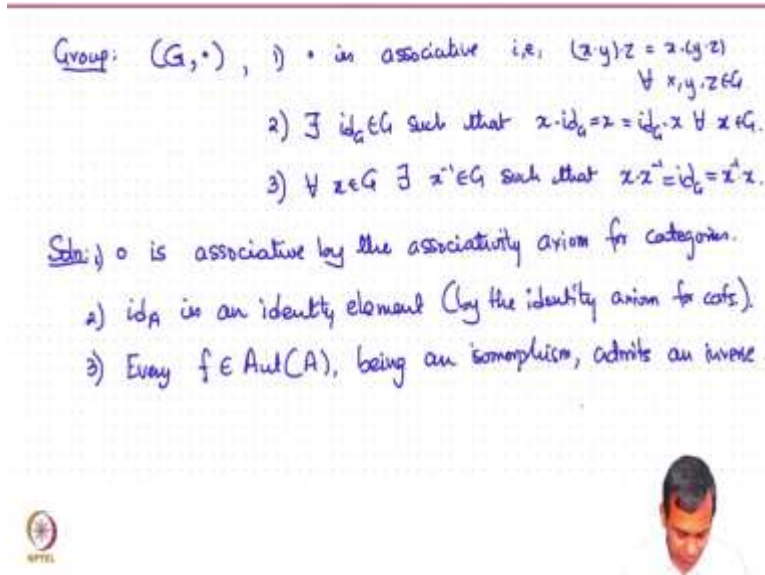 Group: (G,·), 1) · is associative i.e, (x·y)·z = x·(y·z)
∀ x,y,z∈G
2) ∃ id_G∈G such that x·id_G=x=id_G·x ∀ x∈G.
3) ∀ x∈G ∃ x⁻¹∈G such that x·x⁻¹=id_G=x⁻¹·x.
Soln: 1) ∘ is associative by the associativity axiom for categories.
2) id_A is an identity element (by the identity axiom for cats.).
3) Every f ∈ Aut(A), being an isomorphism, admits an inverse
NPTEL